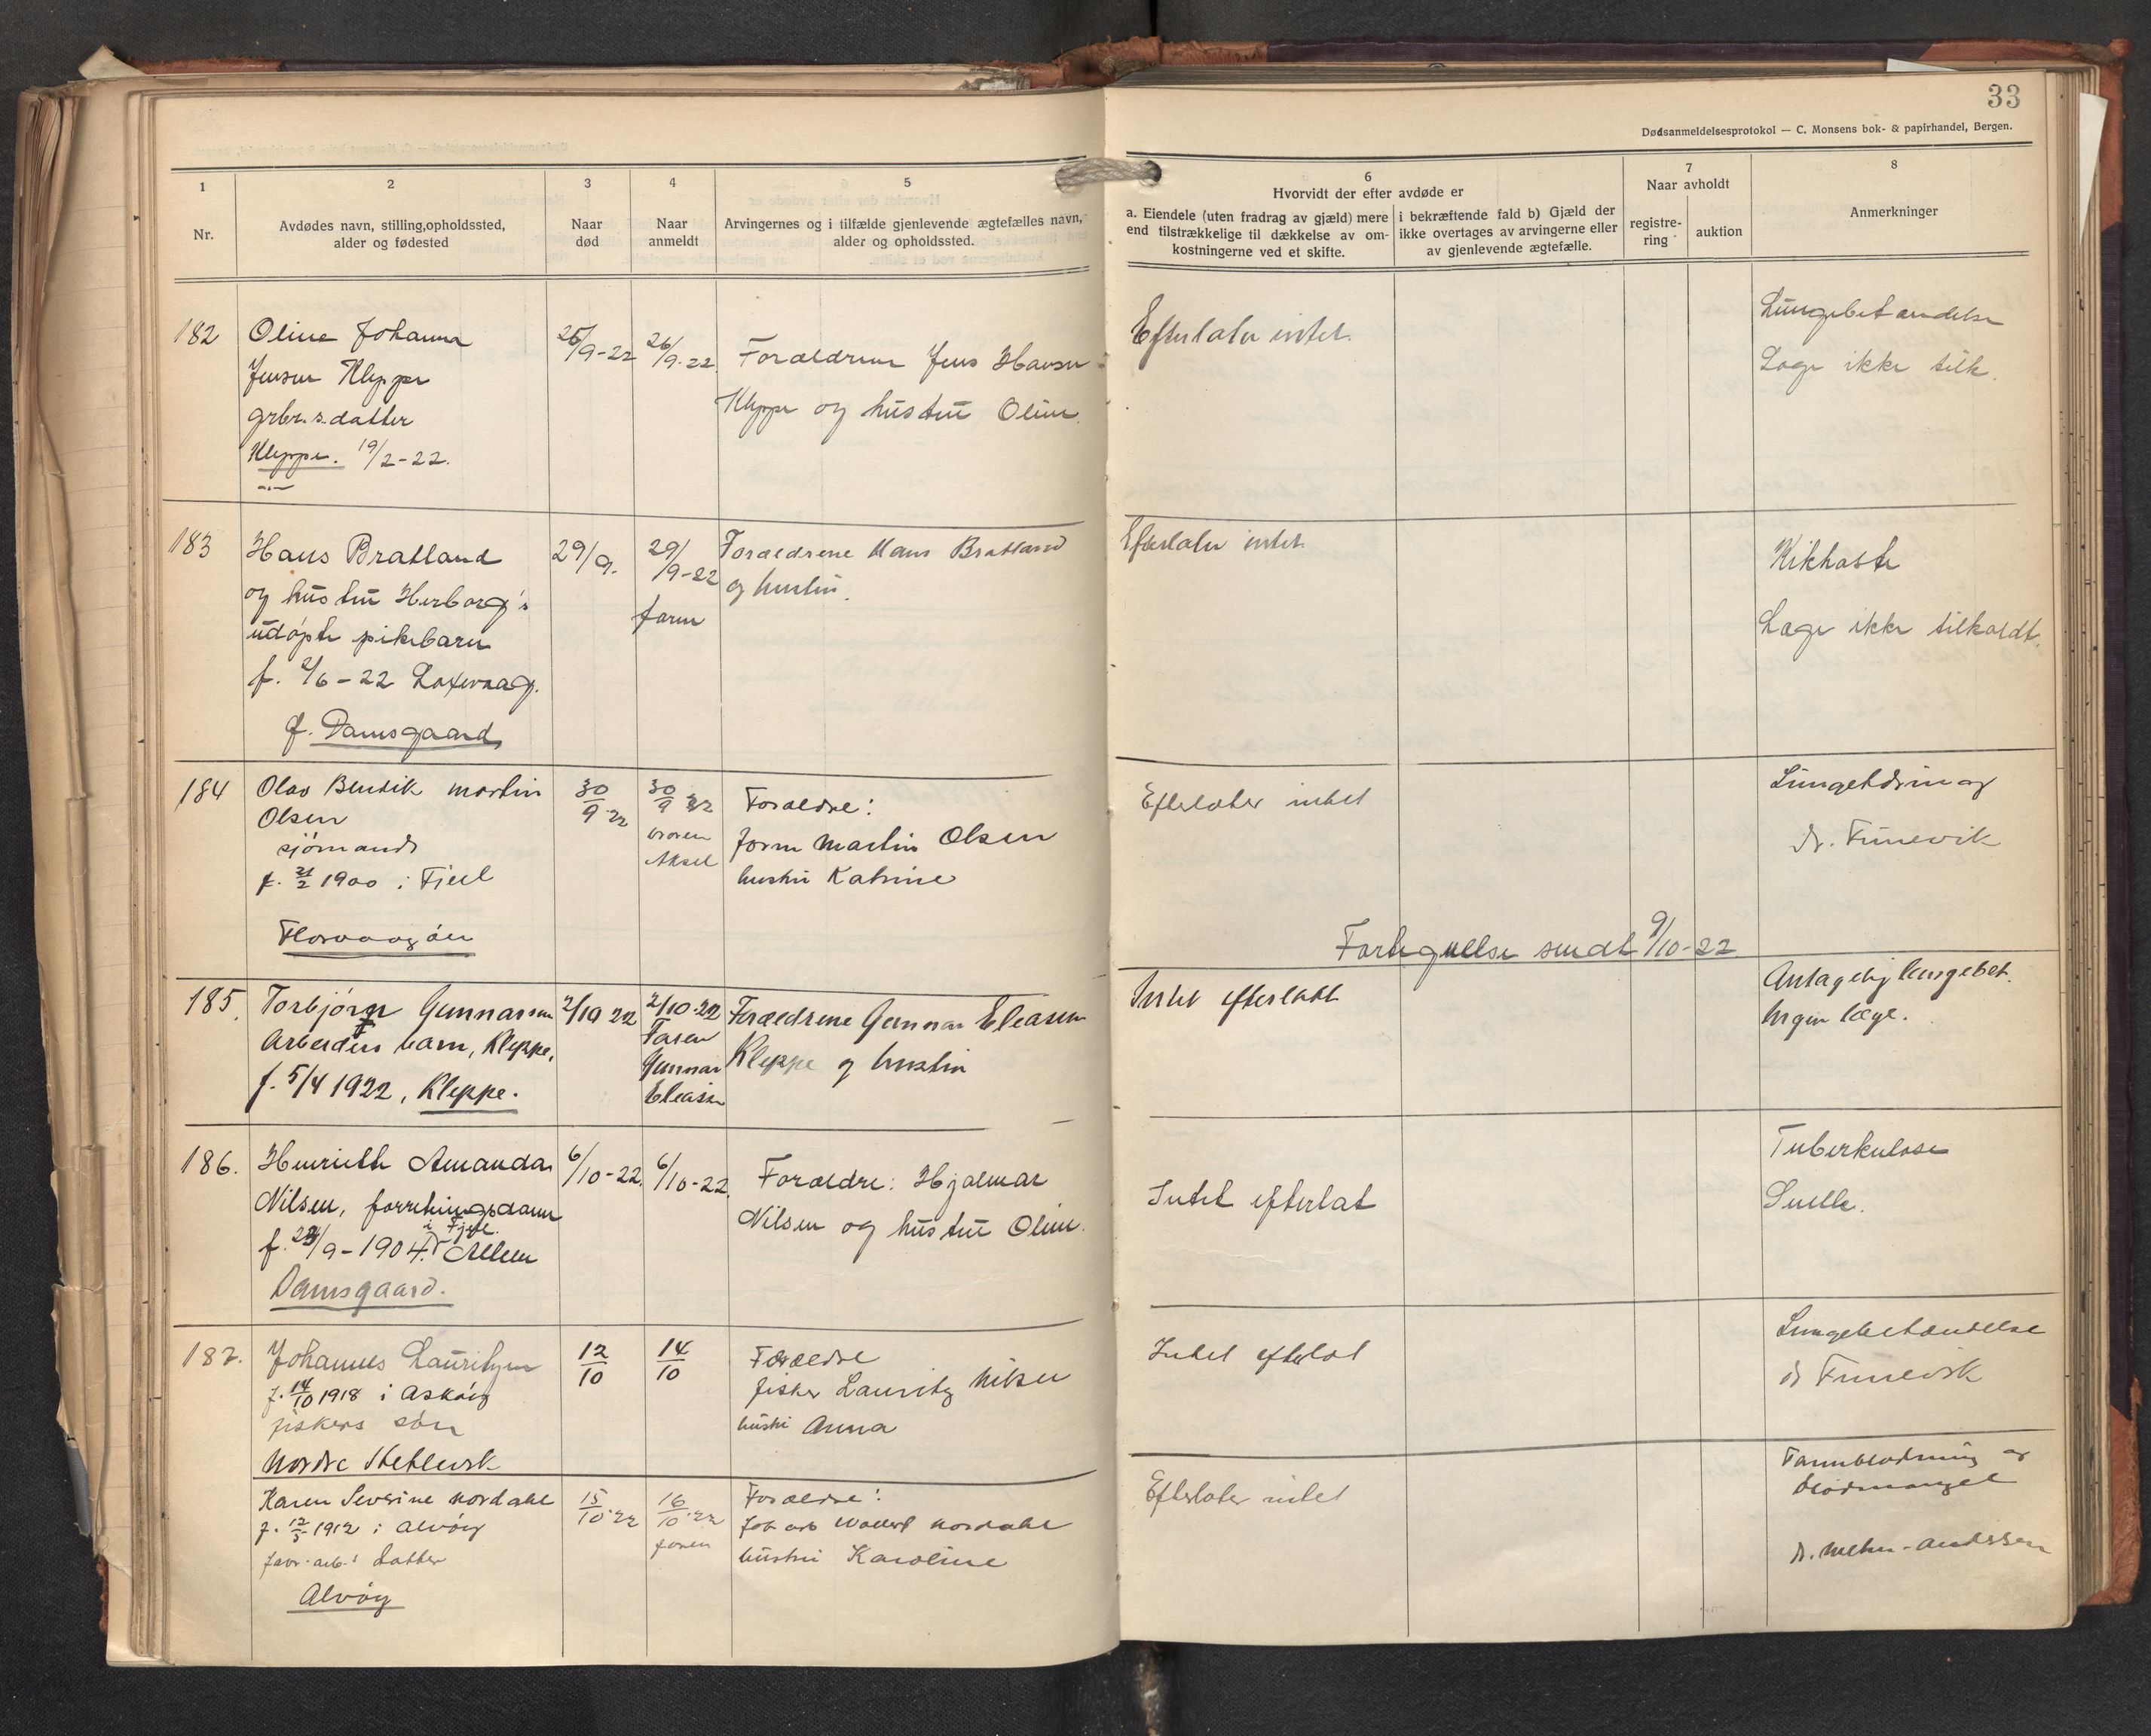 33
Dødsanmeldelsesprotokol — C. Monsens bok- & papirhandel, Bergen.
1
Nr.
2
Avdødes navn, stilling, opholdssted,
alder og fødested
3
Naar
død
4
Naar
anmeldt
5
Arvingernes og i tilfælde gjenlevende ægtefælles navn,
alder og opholdssted.
6
Hvorvidt der efter avdøde er
a. Eiendele (uten fradrag av gjæld) mere
end tilstrækkelige til dækkelse av om-
kostningerne ved et skifte.
i bekræftende fald b) Gjæld der
ikke overtages av arvingerne eller
av gjenlevende ægtefælle.
7
Naar avholdt
registre-
ring
auktion
8
Anmerkninger
182
Oline Johanna
Jensen Kleppe
grbr.s.datter
Kleppe. 19/2-22.
25/9-22
26/9-22
Forældrene Jens Hansen
Kleppe og hustru Oline.
Efterlater intet.
Lungebetændelse
Læge ikke tilk.
183
Hans Bratland
og hustru Herborg's
udøpte pikebarn
f. 2/6-22 Laxevaag.
f. Damsgaard
29/9.
29/9-22
faren
Forældrene Hans Bratland
og hustru.
Efterlater intet.
Kikhoste
Læge ikke tilkaldt.
184
Olav Bendik Martin
Olsen
sjømand
f. 21/2 1900 i Fjell
Florvaagøen
30/9-22
30/9 22
broren
Aksel
Forældre:
form Martin Olsen
hustru Katrine
Efterlater intet
Lungetæring
dr. Tunevik
Fortegnelse sendt 9/10-22
185.
Torbjørn Gunnarsen
Arbeiders barn, Kleppe,
f. 5/4 1922, Kleppe.
2/10 22
2/10-22
Faren
Gunnar
Eleasen
Forældrene Gunnar Eleasen
Kleppe og hustru
Intet efterlatt
Antagelig lungebet.
Ingen læge.
186.
Henriette Amanda
Nilsen, forretningsdame
i Fjell.
f. 24/9-1904. Alleen
Damsgaard.
6/10-22.
6/10-22.
Forældre: Hjalmar
Nilsen og hustru Oline.
Intet efterlat
Tuberkulose
Snelle.
187.
Johannes Lauritzen
f. 14/10 1918 i Askøy
fiskers søn
Nordre
12/10
14/10
Forældre
fisker Lauritz Nilsen
hustru Anna
Intet efterlat
Lungebetændelse
dr Tunevik
Karen Severine Nordahl
f. 12/5 1912 i Alvøy
favr. arb.s datter
Alvøy
15/10-22
16/10-22
faren
Forældre:
fab arb Wollert Nordahl
hustru Karoline
Efterlater intet
Tarmblødning og
blodmangel
dr. Mehn-Andersen